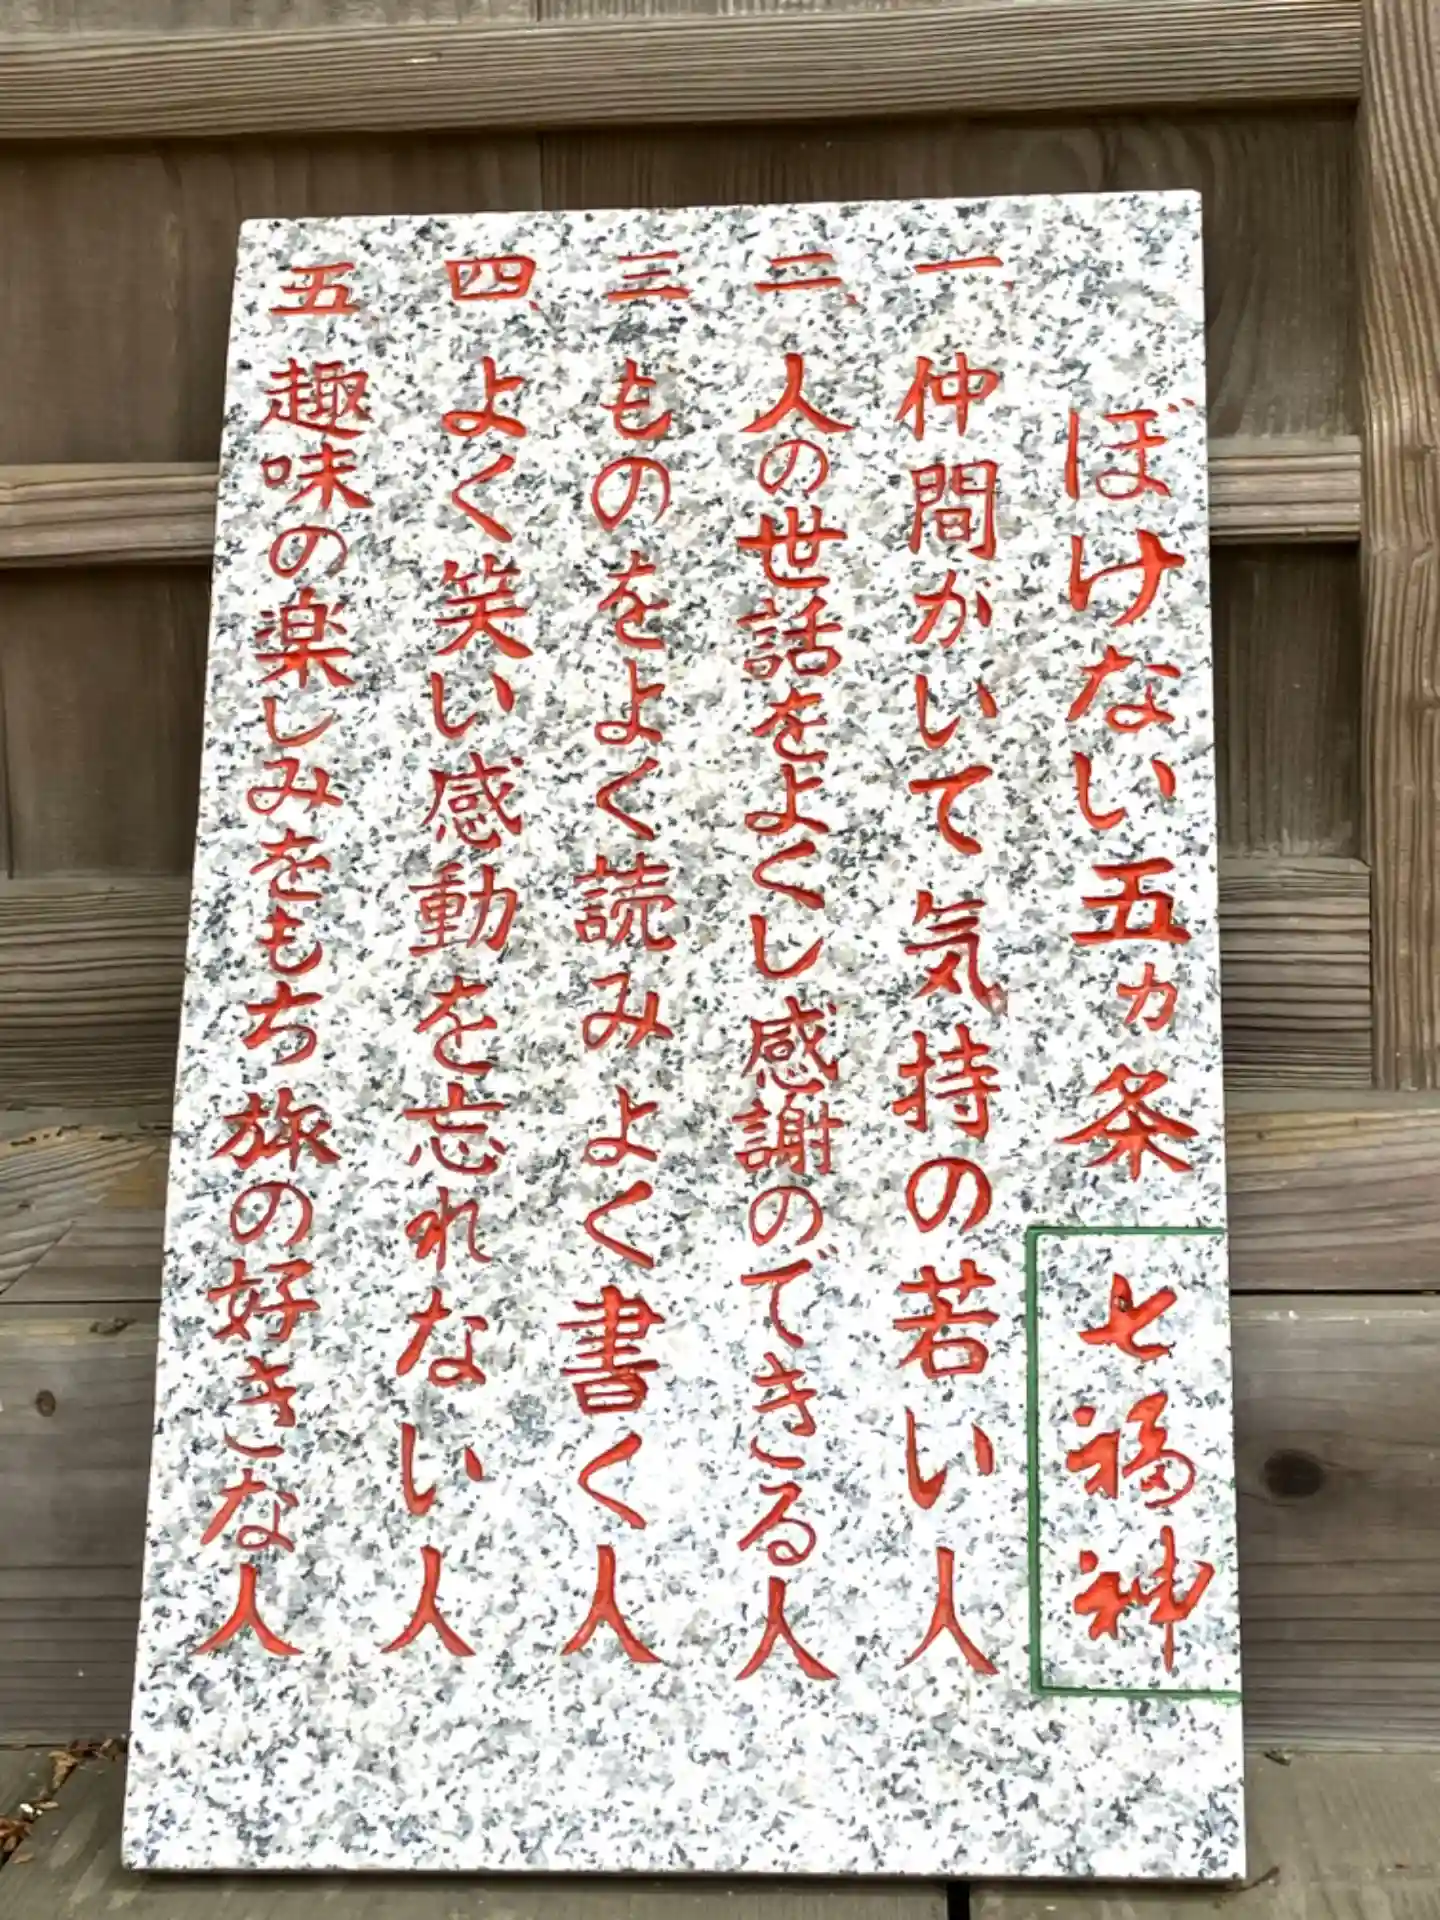 ぼけない五カ条 七福神
一、仲間がいて気持の若い人
二、人の世話をよくし感謝のできる人
三 ものをよく読みよく書く人
四、よく笑い感動を忘れない人
五 趣味の楽しみをもち旅の好きな人